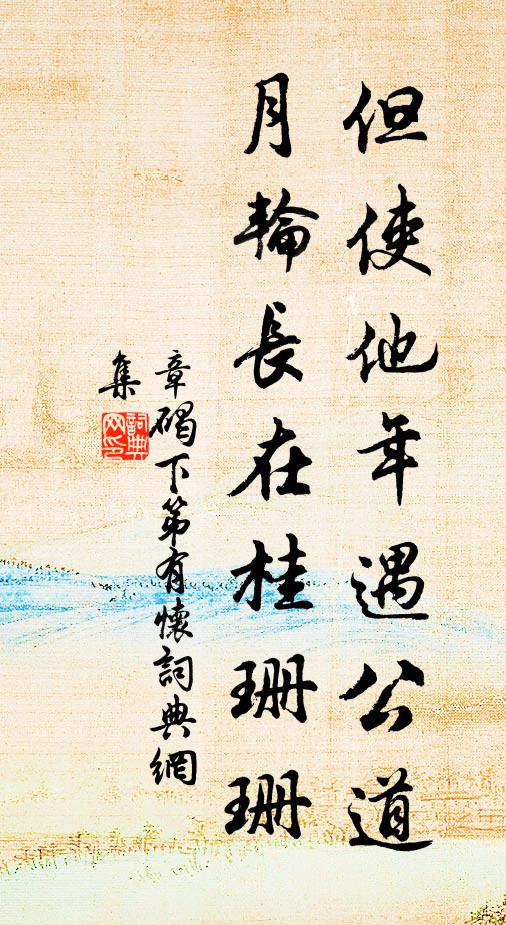 但使他年遇公道
月輪長在桂珊珊
章碣下第有懷詞典網
集
詞典網印